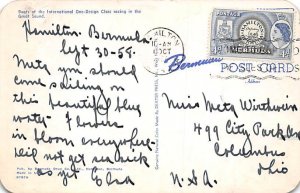 Boats of the International One-Design Class racing in the
Great Sound.
Hamilton. Bermuda
Sept 30-59.
Metz you should
come sailing on
this beautiful blue
water. Flowers
in bloom everywhere.
Did not get sea sick
as yet Elsa
HAMILTON
10-AM
OCT
POSTAGE
BERMUDA
Bermuda
POST CARDS
Miss Metz Wirthwein
499 City Park Ave
Columbus
Ohio
U.S.A.